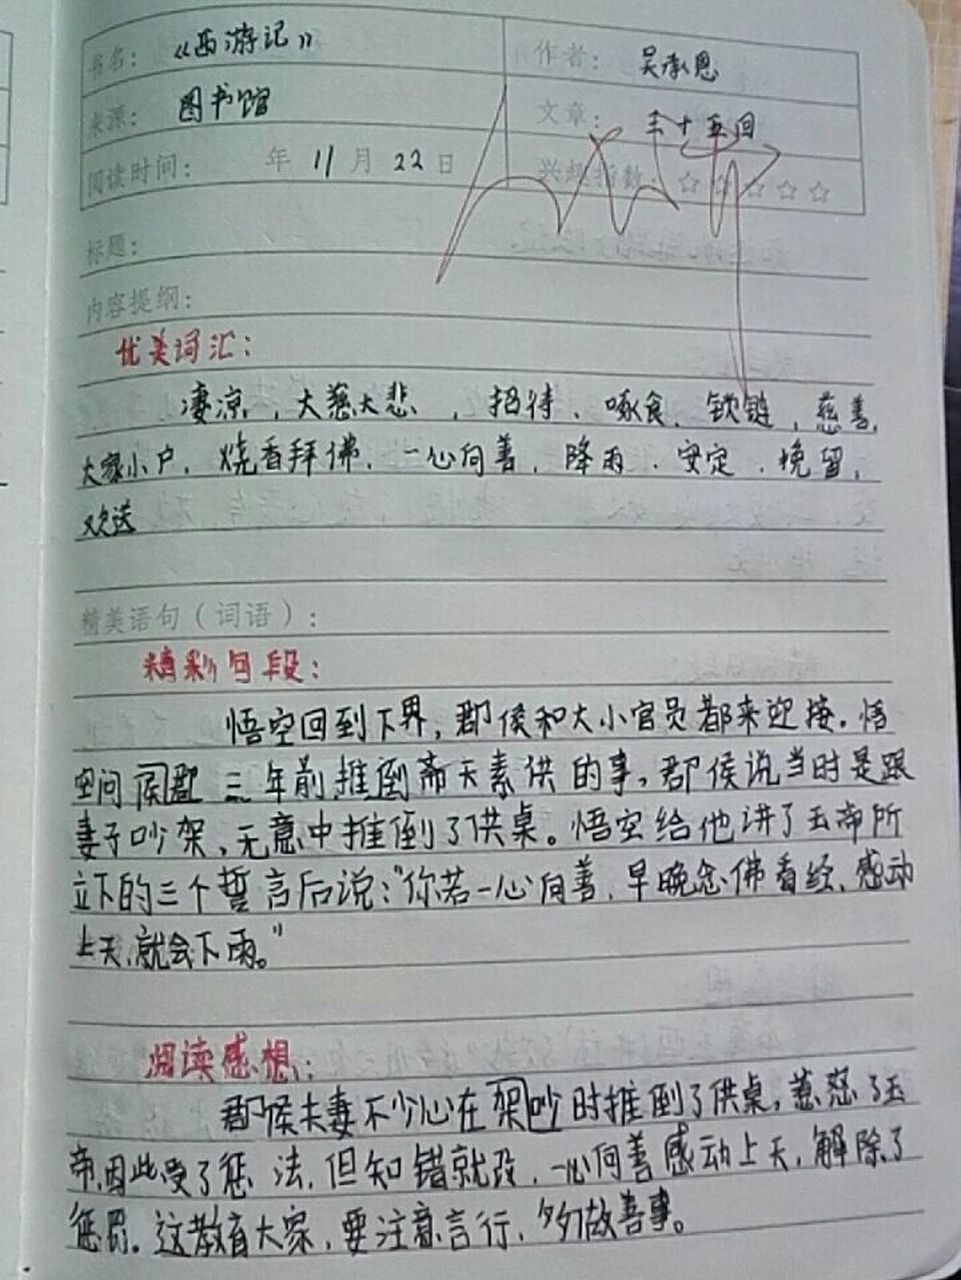 书名：《西游记》 作者：吴承恩
来源：图书馆 文章：三十五回
阅读时间： 年 11 月 22 日 兴趣指数：☆☆☆☆☆
标题：
内容提纲：
优美词汇：
凄凉，大慈大悲，招待、啄食、锁链，慈善，
大家小户，烧香拜佛，一心向善，降雨、安定、挽留，
欢送
精美语句（词语）：
精彩句段：
悟空回到下界，郡侯和大小官员都来迎接。悟
空问侯郡三年前推倒斋天素供的事，郡侯说当时是跟
妻子吵架，无意中推倒了供桌。悟空给他讲了玉帝所
立下的三个誓言后说：“你若一心向善，早晚念佛看经，感动
上天，就会下雨。”
阅读感想：
郡侯夫妻不少心在架吵时推倒了供桌，惹怒了玉
帝，因此受了惩法，但知错就改，一心向善感动上天，解除了
惩罚。这教育大家，要注意言行，多做善事。